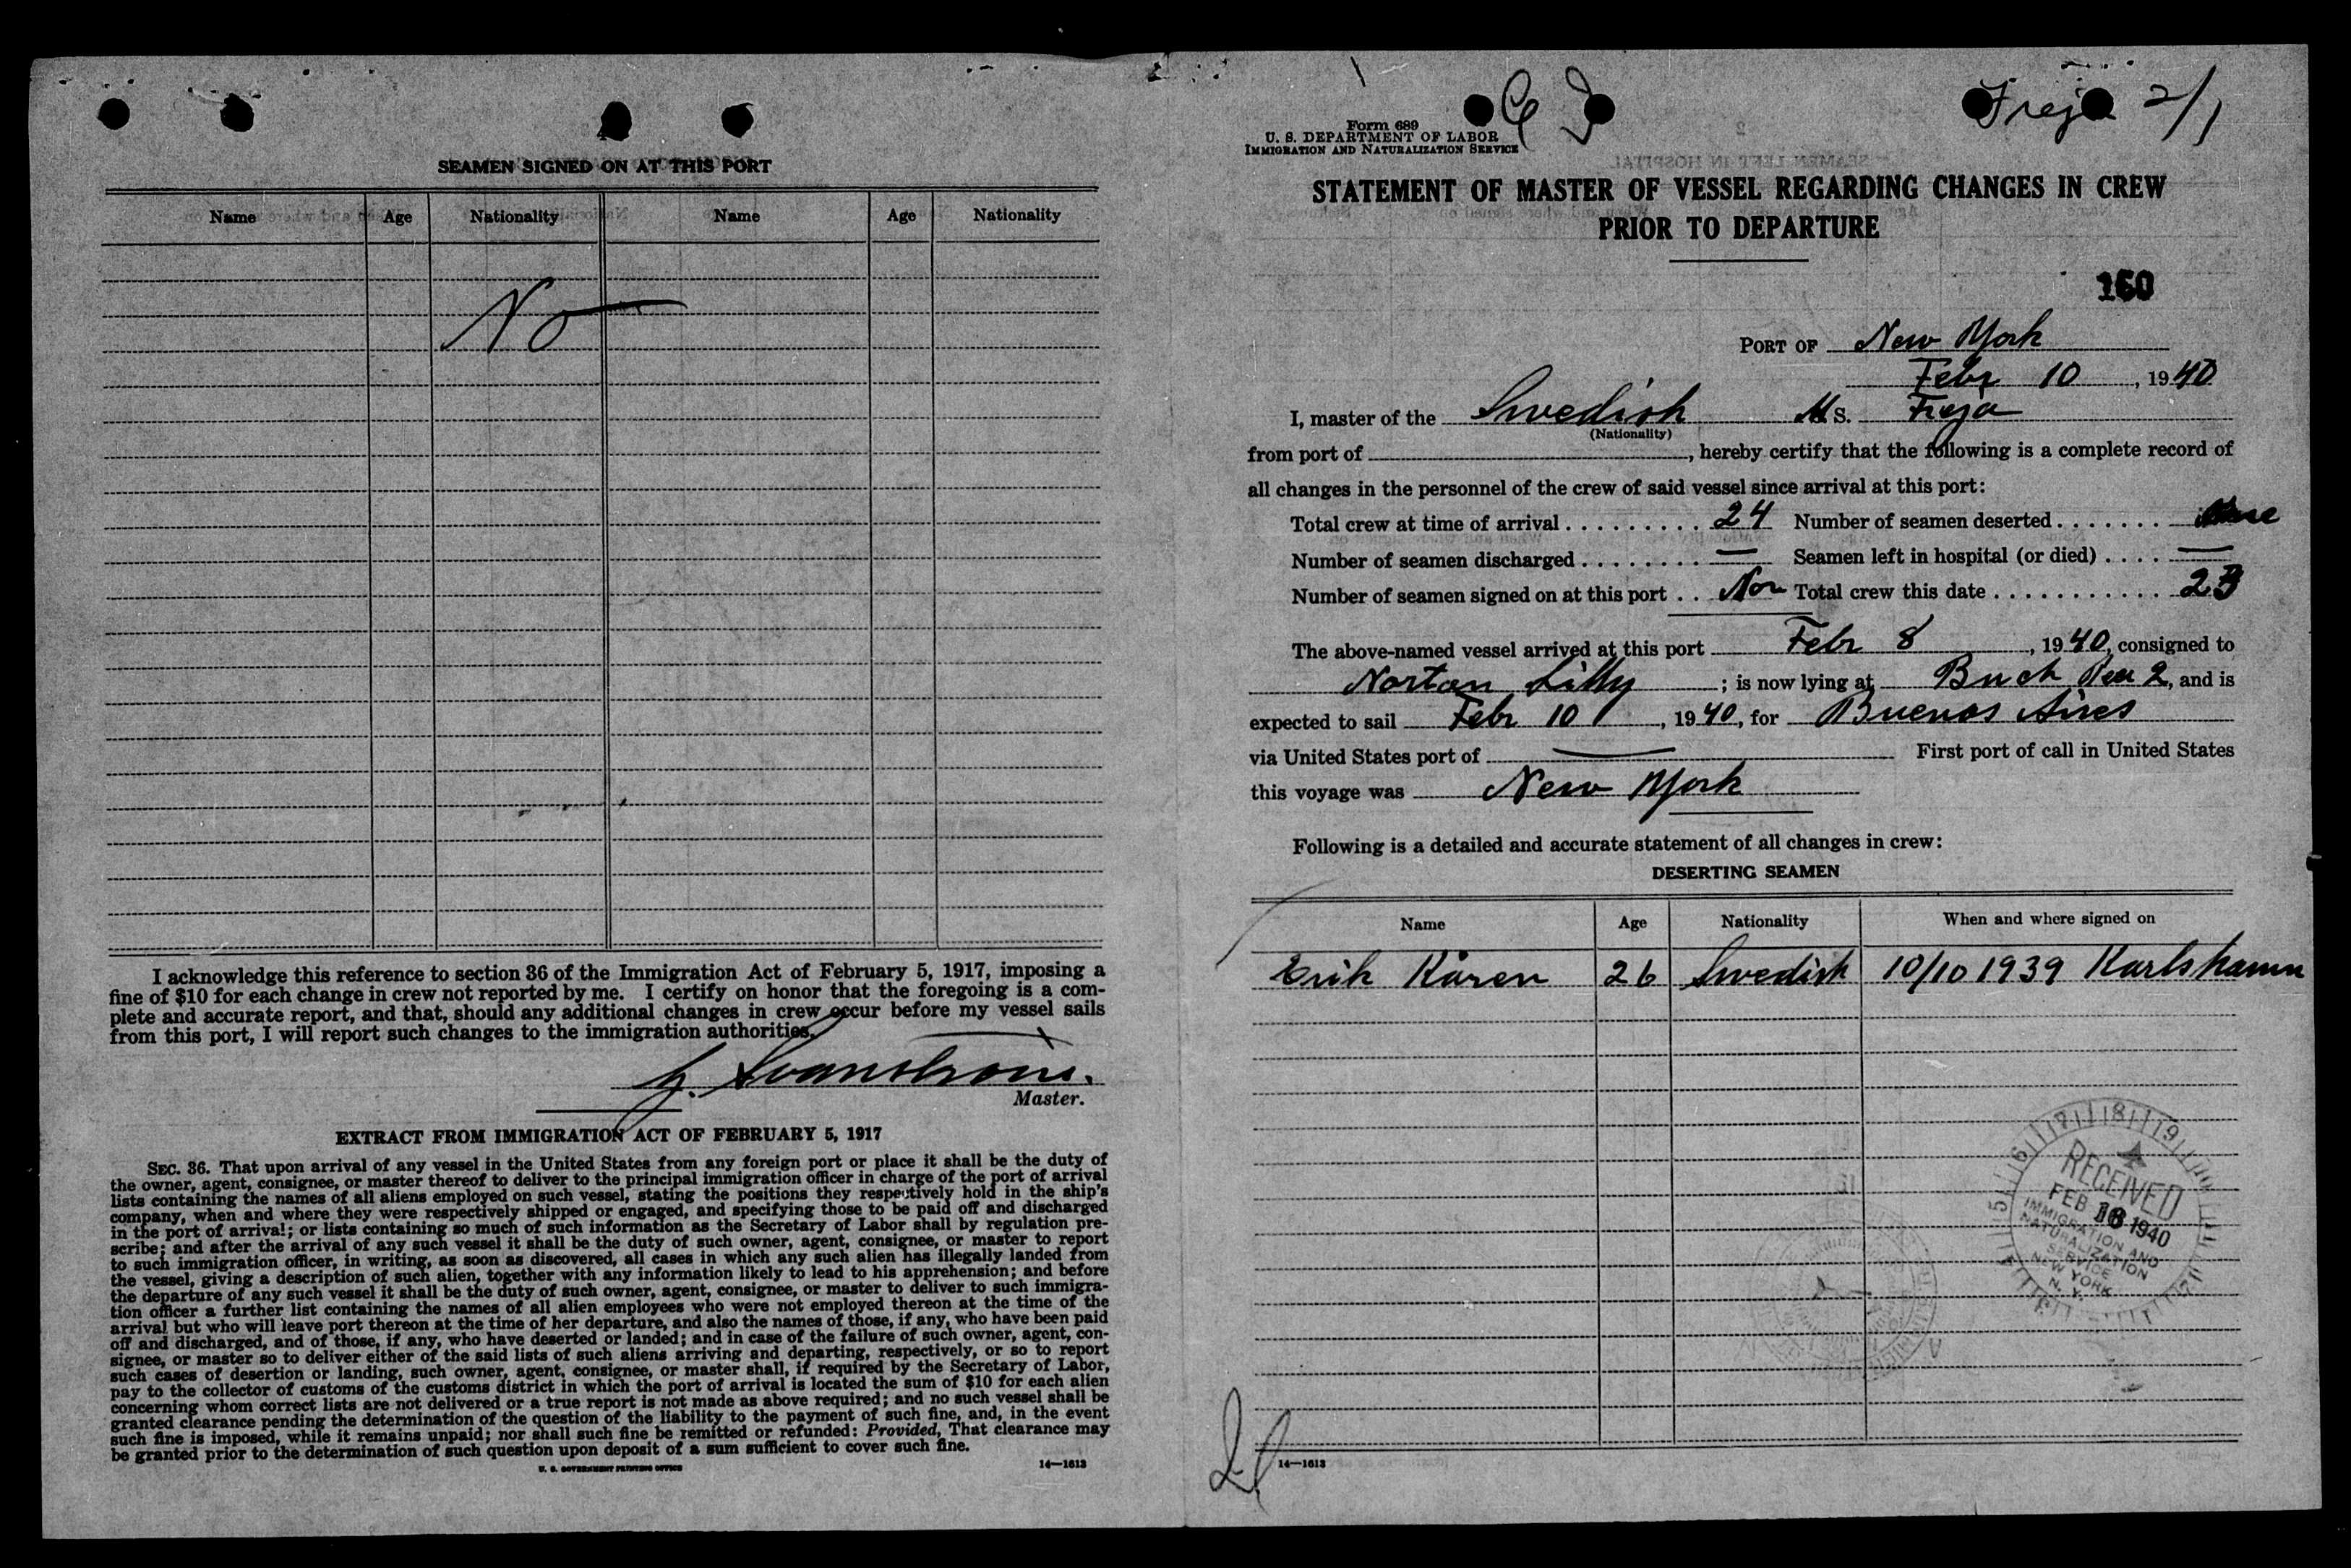 SEAMEN SIGNED ON AT THIS PORT
Name Age Nationality Name Age Nationality
No
I acknowledge this reference to section 36 of the Immigration Act of February 5, 1917, imposing a
fine of $10 for each change in crew not reported by me. I certify on honor that the foregoing is a com-
plete and accurate report, and that, should any additional changes in crew occur before my vessel sails
from this port, I will report such changes to the immigration authorities.
Master.
EXTRACT FROM IMMIGRATION ACT OF FEBRUARY 5, 1917
SEC. 36. That upon arrival of any vessel in the United States from any foreign port or place it shall be the duty of
the owner, agent, consignee, or master thereof to deliver to the principal immigration officer in charge of the port of arrival
lists containing the names of all aliens employed on such vessel, stating the positions they respectively hold in the ship's
company, when and where they were respectively shipped or engaged, and specifying those to be paid off and discharged
in the port of arrival; or lists containing so much of such information as the Secretary of Labor shall by regulation pre-
scribe; and after the arrival of any such vessel it shall be the duty of such owner, agent, consignee, or master to report
to such immigration officer, in writing, as soon as discovered, all cases in which any such alien has illegally landed from
the vessel, giving a description of such alien, together with any information likely to lead to his apprehension; and before
the departure of any such vessel it shall be the duty of such owner, agent, consignee, or master to deliver to such immigra-
tion officer a further list containing the names of all alien employees who were not employed thereon at the time of the
arrival but who will leave port thereon at the time of her departure, and also the names of those, if any, who have been paid
off and discharged, and of those, if any, who have deserted or landed; and in case of the failure of such owner, agent, con-
signee, or master so to deliver either of the said lists of such aliens arriving and departing, respectively, or so to report
such cases of desertion or landing, such owner, agent, consignee, or master shall, if required by the Secretary of Labor,
pay to the collector of customs of the customs district in which the port of arrival is located the sum of $10 for each alien
concerning whom correct lists are not delivered or a true report is not made as above required; and no such vessel shall be
granted clearance pending the determination of the question of the liability to the payment of such fine, and, in the event
such fine is imposed, while it remains unpaid; nor shall such fine be remitted or refunded: Provided, That clearance may
be granted prior to the determination of such question upon deposit of a sum sufficient to cover such fine.
U. S. GOVERNMENT PRINTING OFFICE 14—1613
Freja 2/1
Form 689
U. S. DEPARTMENT OF LABOR
IMMIGRATION AND NATURALIZATION SERVICE
STATEMENT OF MASTER OF VESSEL REGARDING CHANGES IN CREW
PRIOR TO DEPARTURE
160
PORT OF New York
Febr 10, 1940
I, master of the Swedish M S. Freja
(Nationality)
from port of , hereby certify that the following is a complete record of
all changes in the personnel of the crew of said vessel since arrival at this port:
Total crew at time of arrival 24 Number of seamen deserted
Number of seamen discharged — Seamen left in hospital (or died) —
Number of seamen signed on at this port Non Total crew this date 23
The above-named vessel arrived at this port Febr 8, 1940, consigned to
Norton Lilly ; is now lying at 2, and is
expected to sail Febr 10, 1940, for Buenos Aires
via United States port of — First port of call in United States
this voyage was New York
Following is a detailed and accurate statement of all changes in crew:
DESERTING SEAMEN
Name Age Nationality When and where signed on
Erik Kåren 26 Swedish 10/10 1939 Karlshamn
RECEIVED
FEB 1940
IMMIGRATION AND
NATURALIZATION
SERVICE
NEW YORK
N. Y.
14—1613